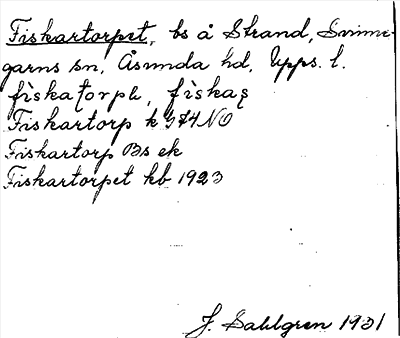 Fiskartorpet, bs å Strand, Svinne-
garns sn, Åsunda hd, Upps. l.
fiskatorpe, fiskaz
Fiskartorp k 374 NO
Fiskartorp Bs ek
Fiskartorpet kb 1923
J. Sahlgren 1931